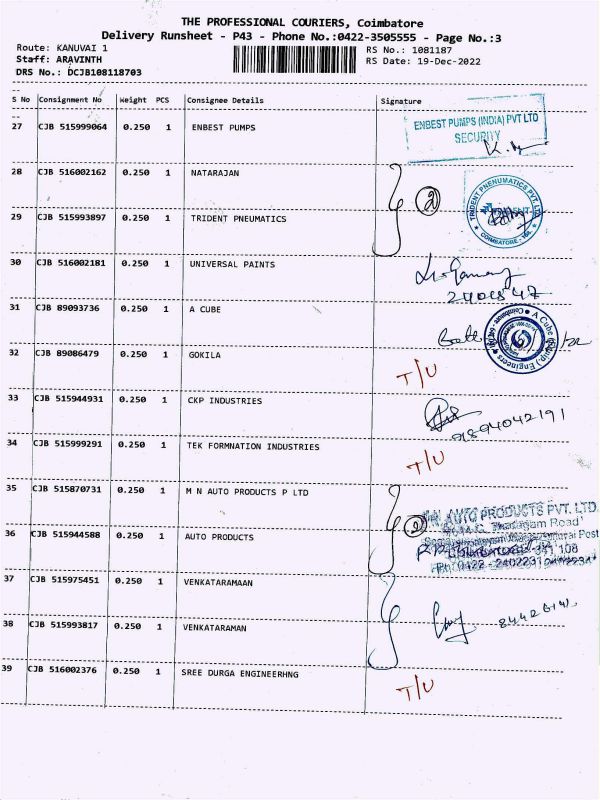 THE PROFESSIONAL COURIERS, Coimbatore
Delivery Runsheet - P43 - Phone No.:0422-3505555 - Page No.:3
Route: KANUVAI 1 RS No.: 1081187
Staff: ARAVINTH RS Date: 19-Dec-2022
DRS No.: DCJB108118703
S No Consignment No Weight PCS Consignee Details Signature
27 CJB 515999064 0.250 1 ENBEST PUMPS
ENBEST PUMPS (INDIA) PVT LTD
SECURITY
28 CJB 516002162 0.250 1 NATARAJAN
2
TRIDENT PNENUMATICS PVT. LTD.
COIMBATORE
29 CJB 515993897 0.250 1 TRIDENT PNEUMATICS
30 CJB 516002181 0.250 1 UNIVERSAL PAINTS
31 CJB 89093736 0.250 1 A CUBE
32 CJB 89086479 0.250 1 GOKILA T/U
33 CJB 515944931 0.250 1 CKP INDUSTRIES
9894042191
34 CJB 515999291 0.250 1 TEK FORMNATION INDUSTRIES T/U
35 CJB 515870731 0.250 1 M N AUTO PRODUCTS P LTD
2
AUTO PRODUCTS PVT. LTD.
36 CJB 515944588 0.250 1 AUTO PRODUCTS
37 CJB 515975451 0.250 1 VENKATARAMAAN
38 CJB 515993817 0.250 1 VENKATARAMAN
39 CJB 516002376 0.250 1 SREE DURGA ENGINEERHNG T/U